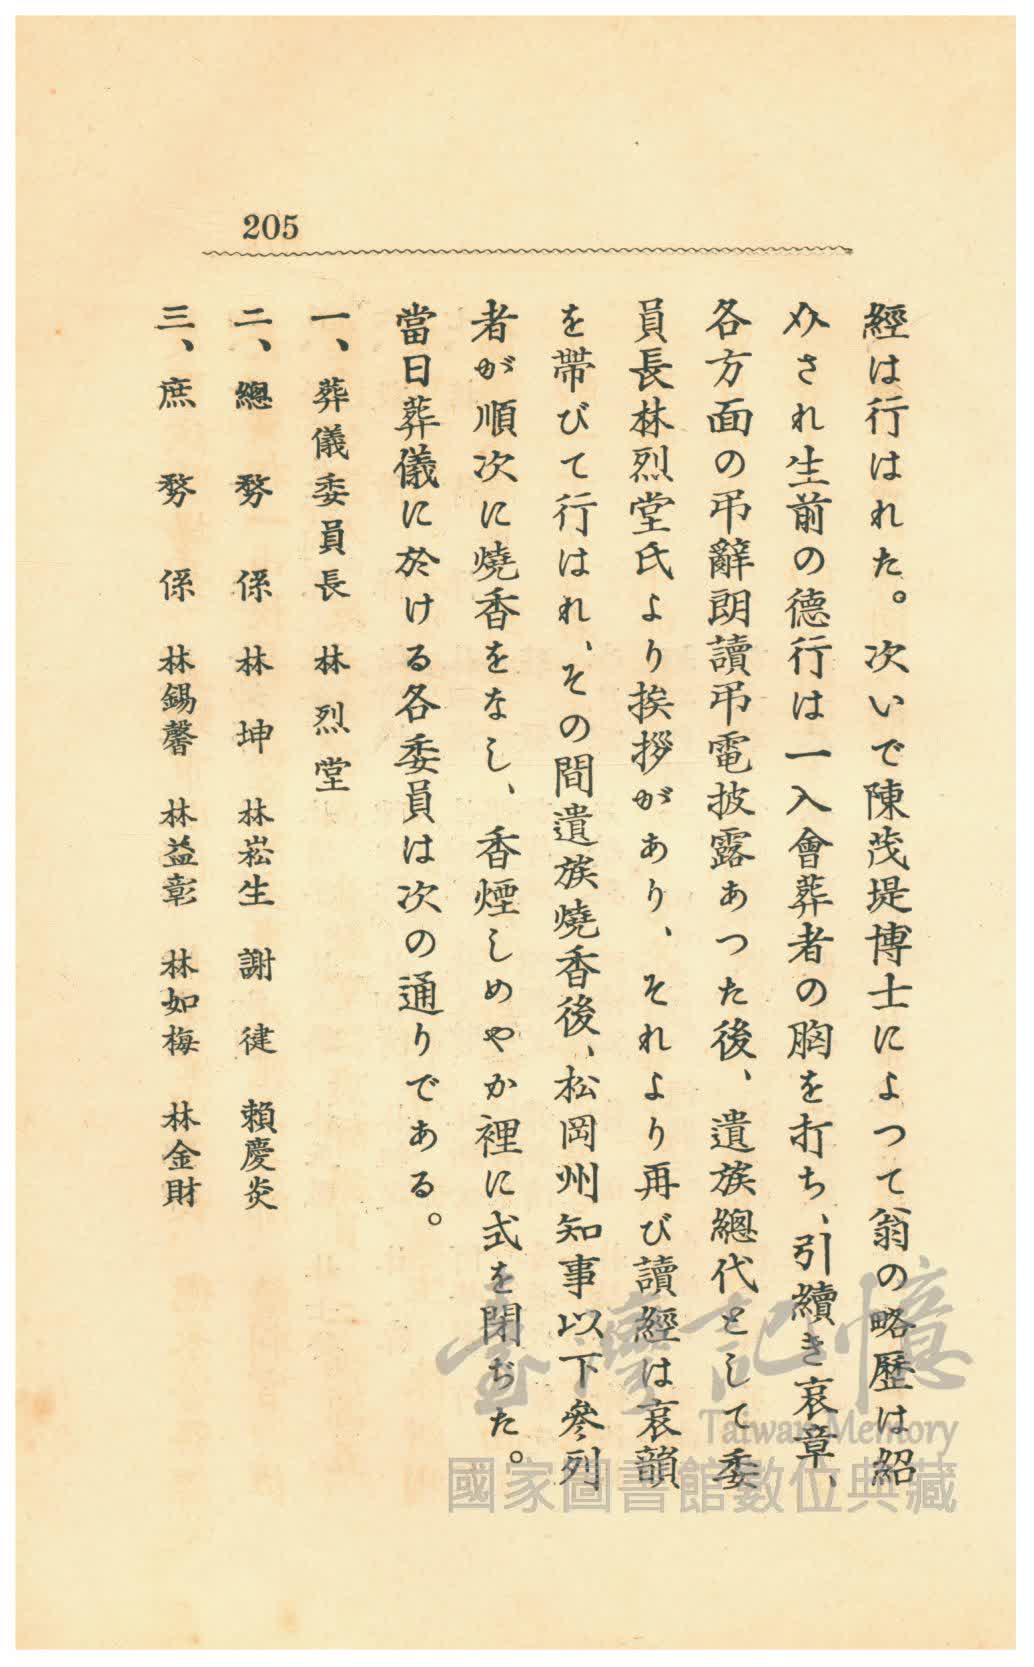 205
經は行はれた。次いで陳茂堤博士によつて翁の略歷は紹
介され生前の德行は一入會葬者の胸を打ち、引續き哀章、
各方面の弔辭朗讀弔電披露あつた後、遺族總代として委
員長林烈堂氏より挨拶があり、それより再び讀經は哀韻
を帶びて行はれ、その間遺族燒香後、松岡州知事以下參列
者が順次に燒香をなし、香煙しめやか裡に式を閉ぢた。
當日葬儀に於ける各委員は次の通りである。
一、葬儀委員長 林烈堂
二、總務係 林坤 林崧生 謝健 賴慶炎
三、庶務係 林錫馨 林益彰 林如梅 林金財
臺灣記憶
Taiwan Memory
國家圖書館數位典藏